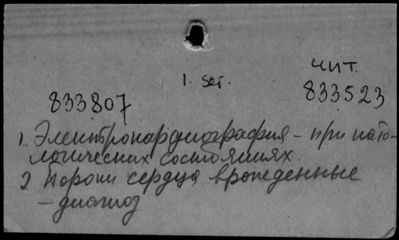 чит.
1. ser.
833807
833523
1. Электрокардиография - при пато-
логических состояниях.
2 Пороки сердца врожденные
- диагноз